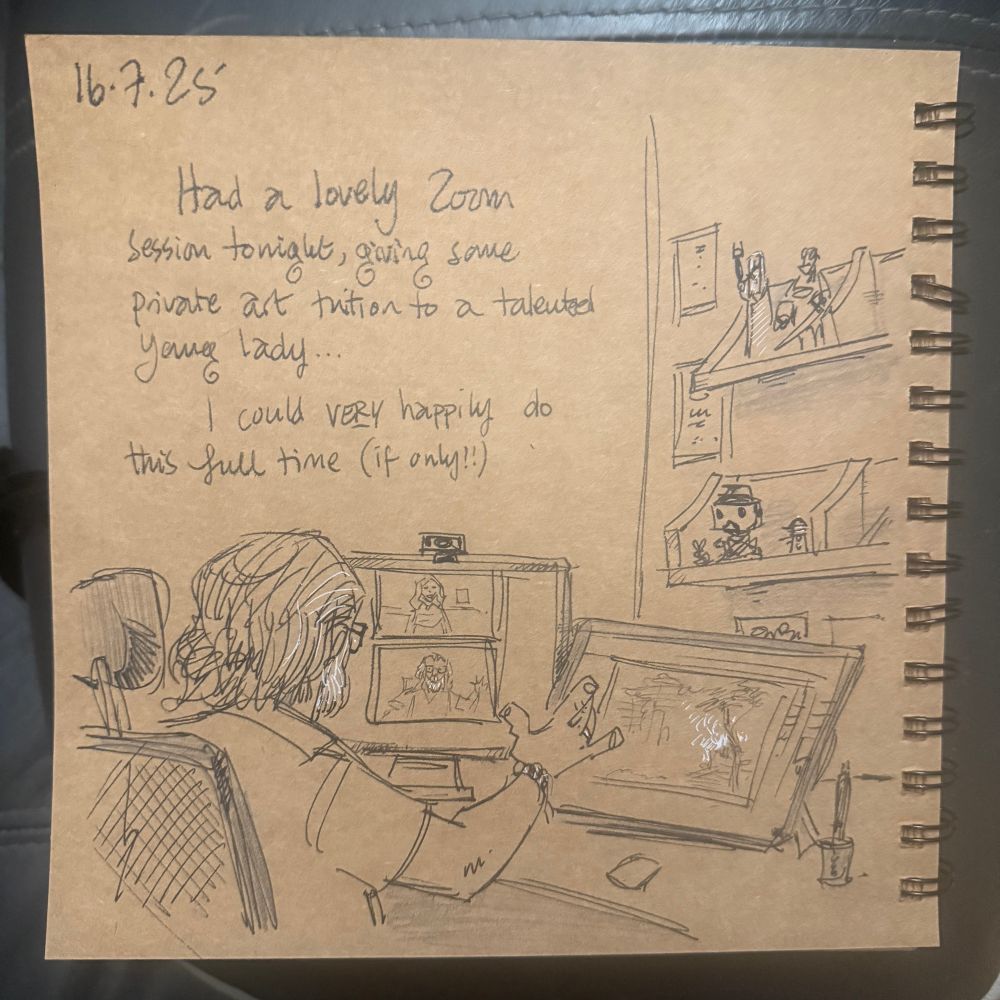 16.7.25
Had a lovely Zoom
session tonight, giving some
private art tuition to a talented
young lady...
I could VERY happily do
this full time (if only!!)